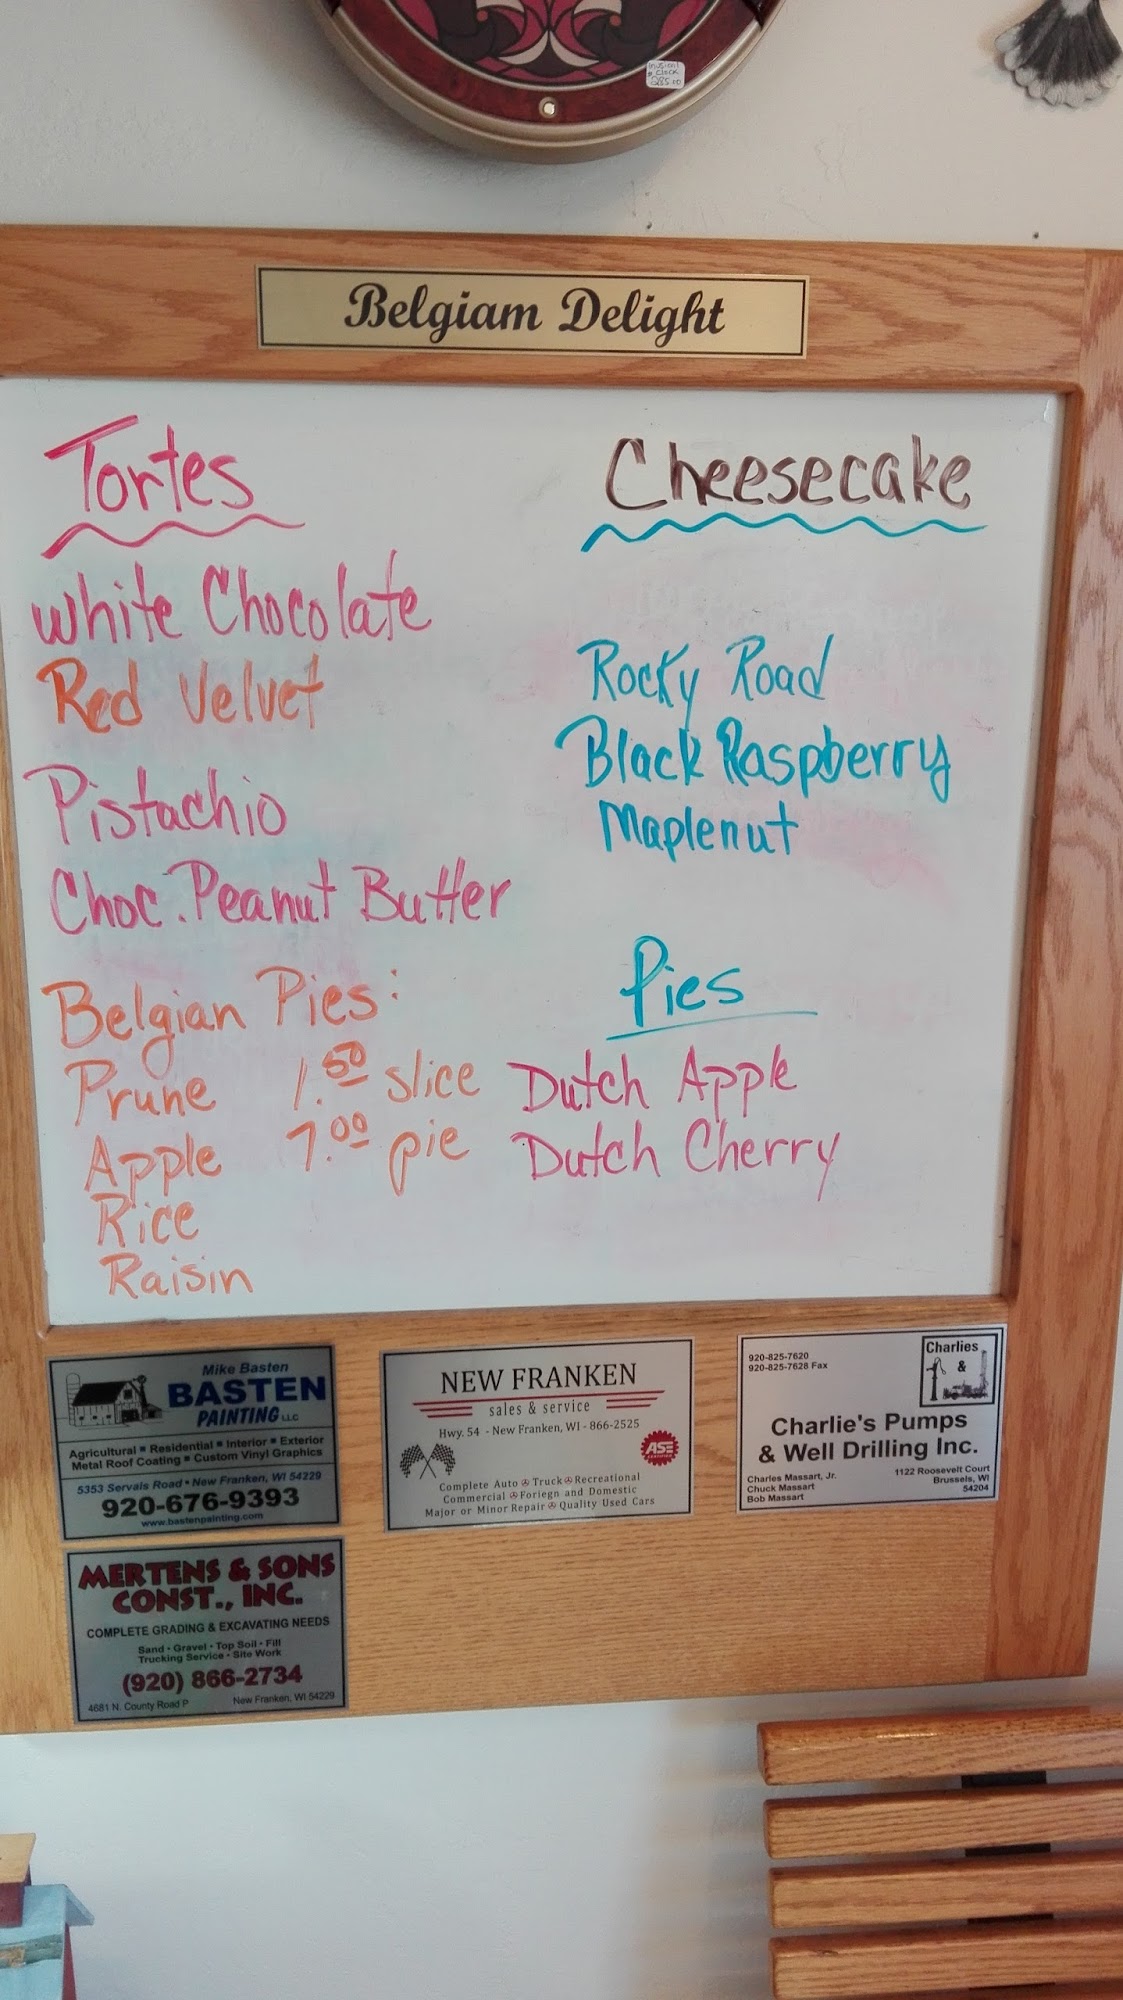 Belgiam Delight
Tortes
White Chocolate
Red Velvet
Pistachio
Choc. Peanut Butter
Belgian Pies:
Prune 1.50 slice
Apple 7.00 pie
Rice
Raisin
Cheesecake
Rocky Road
Black Raspberry
Maplenut
Pies
Dutch Apple
Dutch Cherry
Mike Basten
BASTEN
PAINTING LLC
Agricultural ▪ Residential ▪ Interior ▪ Exterior
Metal Roof Coating ▪ Custom Vinyl Graphics
5353 Servais Road • New Franken, WI 54229
920-676-9393
www.bastenpainting.com
NEW FRANKEN
sales & service
Hwy. 54 - New Franken, WI - 866-2525
ASE
CERTIFIED
Complete Auto Truck Recreational
Commercial Foriegn and Domestic
Major or Minor Repair Quality Used Cars
920-825-7620
920-825-7628 Fax
Charlies
&
Charlie's Pumps
& Well Drilling Inc.
Charles Massart, Jr.
Chuck Massart
Bob Massart
1122 Roosevelt Court
Brussels, WI
54204
MERTENS & SONS
CONST., INC.
COMPLETE GRADING & EXCAVATING NEEDS
Sand • Gravel • Top Soil • Fill
Trucking Service • Site Work
(920) 866-2734
4681 N. County Road P New Franken, WI 54229